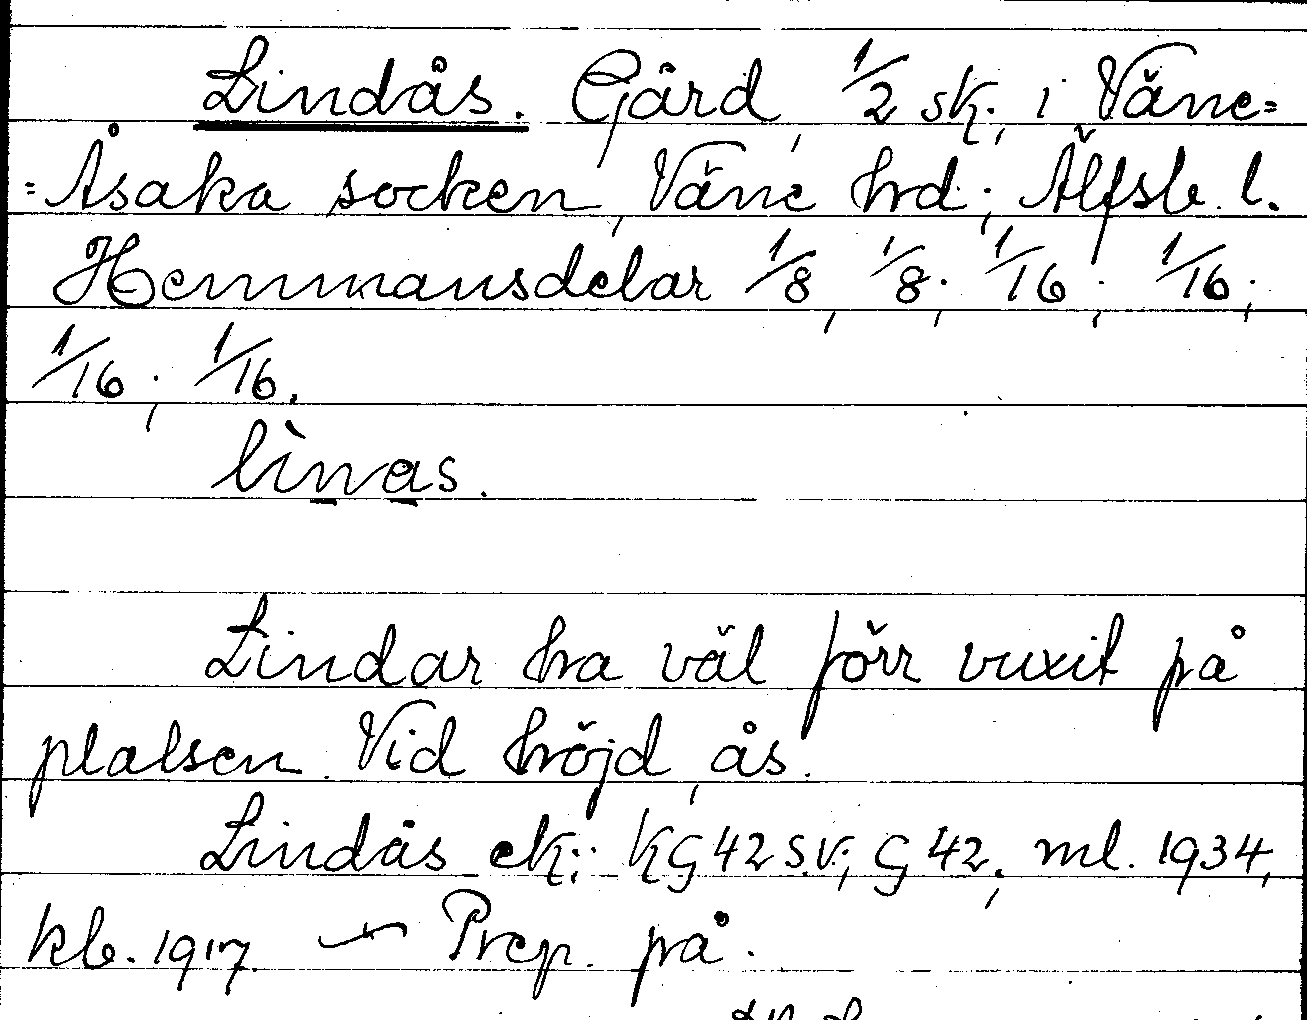 Lindås. Gård, 1/2 sk.; i Väne=
=Åsaka socken, Väne hrd.; Älfsb. l.
Hemmansdelar 1/8, 1/8; 1/16; 1/16;
1/16; 1/16.
lìnas.
Lindar ha väl förr vuxit på
platsen. Vid höjd, ås.
Lindås ek.: KG42 s.v.; G 42; ml. 1934,
kb. 1917. — Prep. på.